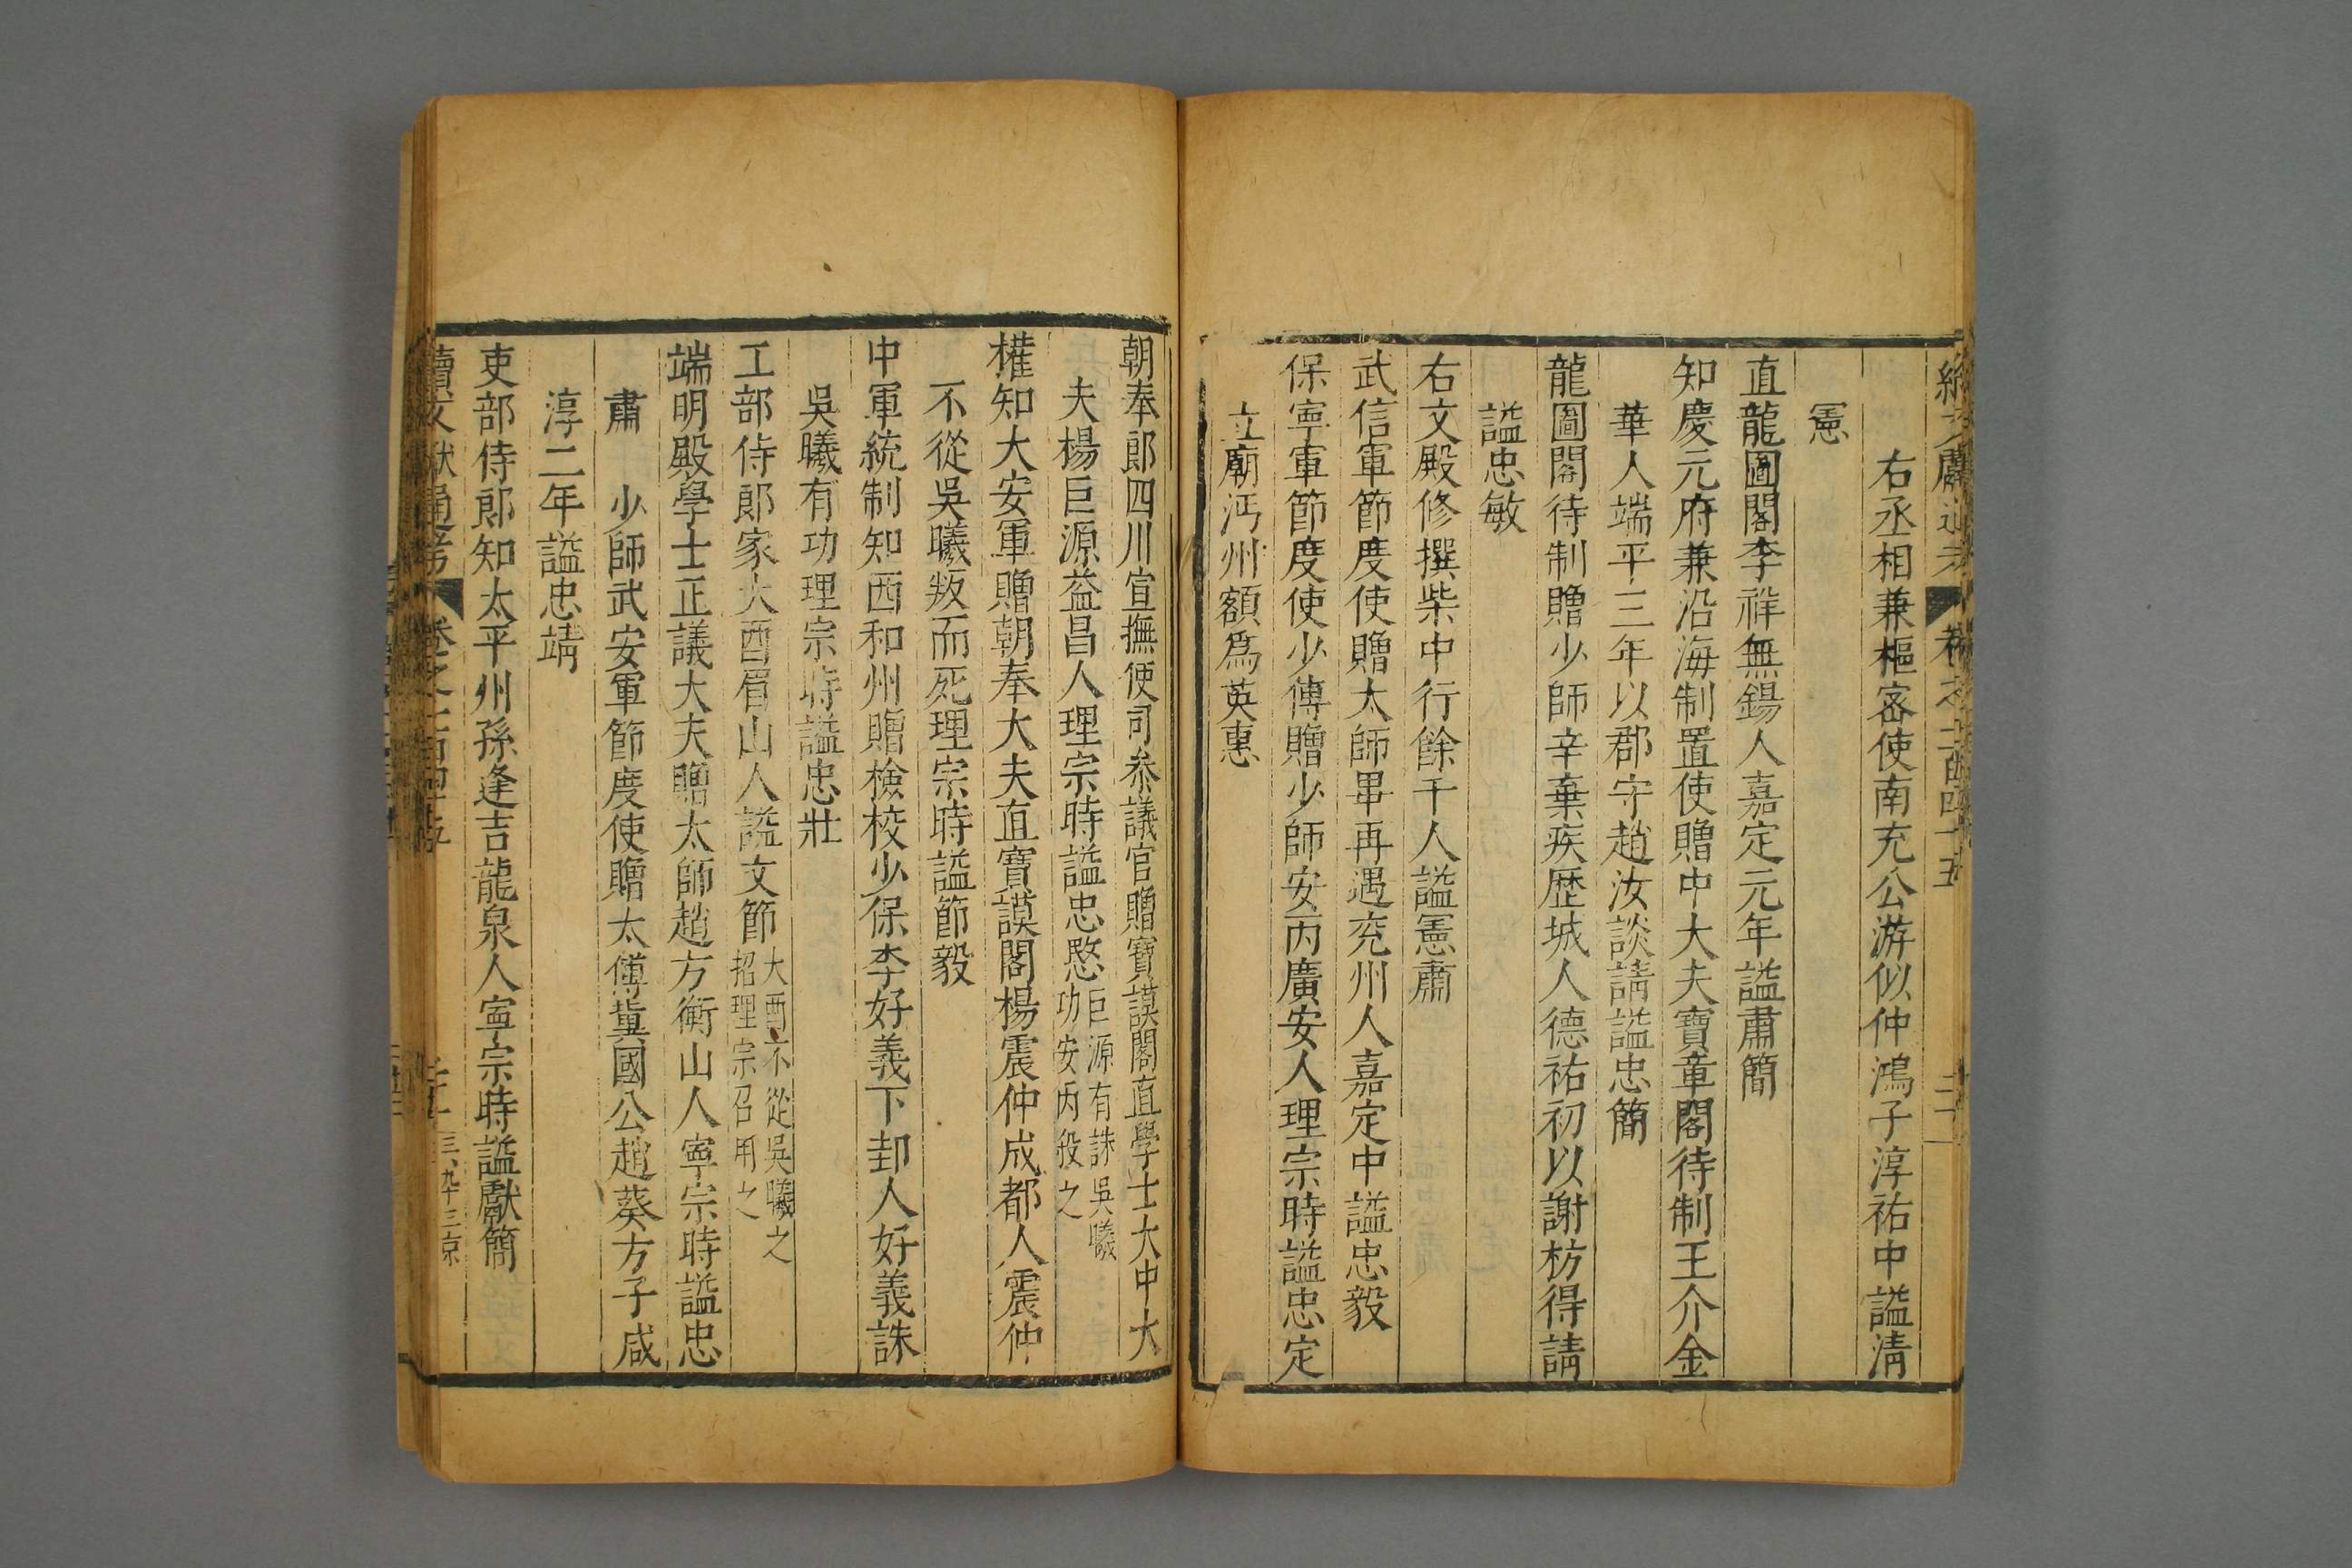 右丞相兼樞密使南充公游似仲鴻子淳祐中謚清
憲
直龍圖閣李祥無錫人嘉定元年謚肅簡
知慶元府兼沿海制置使贈中大夫寶章閣待制王介金
華人端平三年以郡守趙汝談請謚忠簡
龍圖閣待制贈少師辛棄疾歷城人德祐初以謝枋得請
謚忠敏
右文殿修撰柴中行餘干人謚憲肅
武信軍節度使贈太師畢再遇兖州人嘉定中謚忠毅
保寧軍節度使少傅贈少師安丙廣安人理宗時謚忠定
立廟沔州額爲英惠
朝奉郎四川宣撫使司叅議官贈寶謨閣直學士大中大
夫楊巨源益昌人理宗時謚忠愍巨源有誅吳曦功安丙殺之
權知大安軍贈朝奉大夫直寶謨閣楊震仲成都人震仲
不從吳曦叛而死理宗時謚節毅
中軍統制知西和州贈檢校少保李好義下邽人好義誅
吳曦有功理宗時謚忠壯
工部侍郎家大酉眉山人謚文節大酉不從吳曦之招理宗召用之
端明殿學士正議大夫贈太師趙方衡山人寧宗時謚忠
肅 少師武安軍節度使贈太傅冀國公趙葵方子咸
淳二年謚忠靖
吏部侍郎知太平州孫逢吉龍泉人寧宗時謚獻簡
續文獻通考 卷之一百四十五